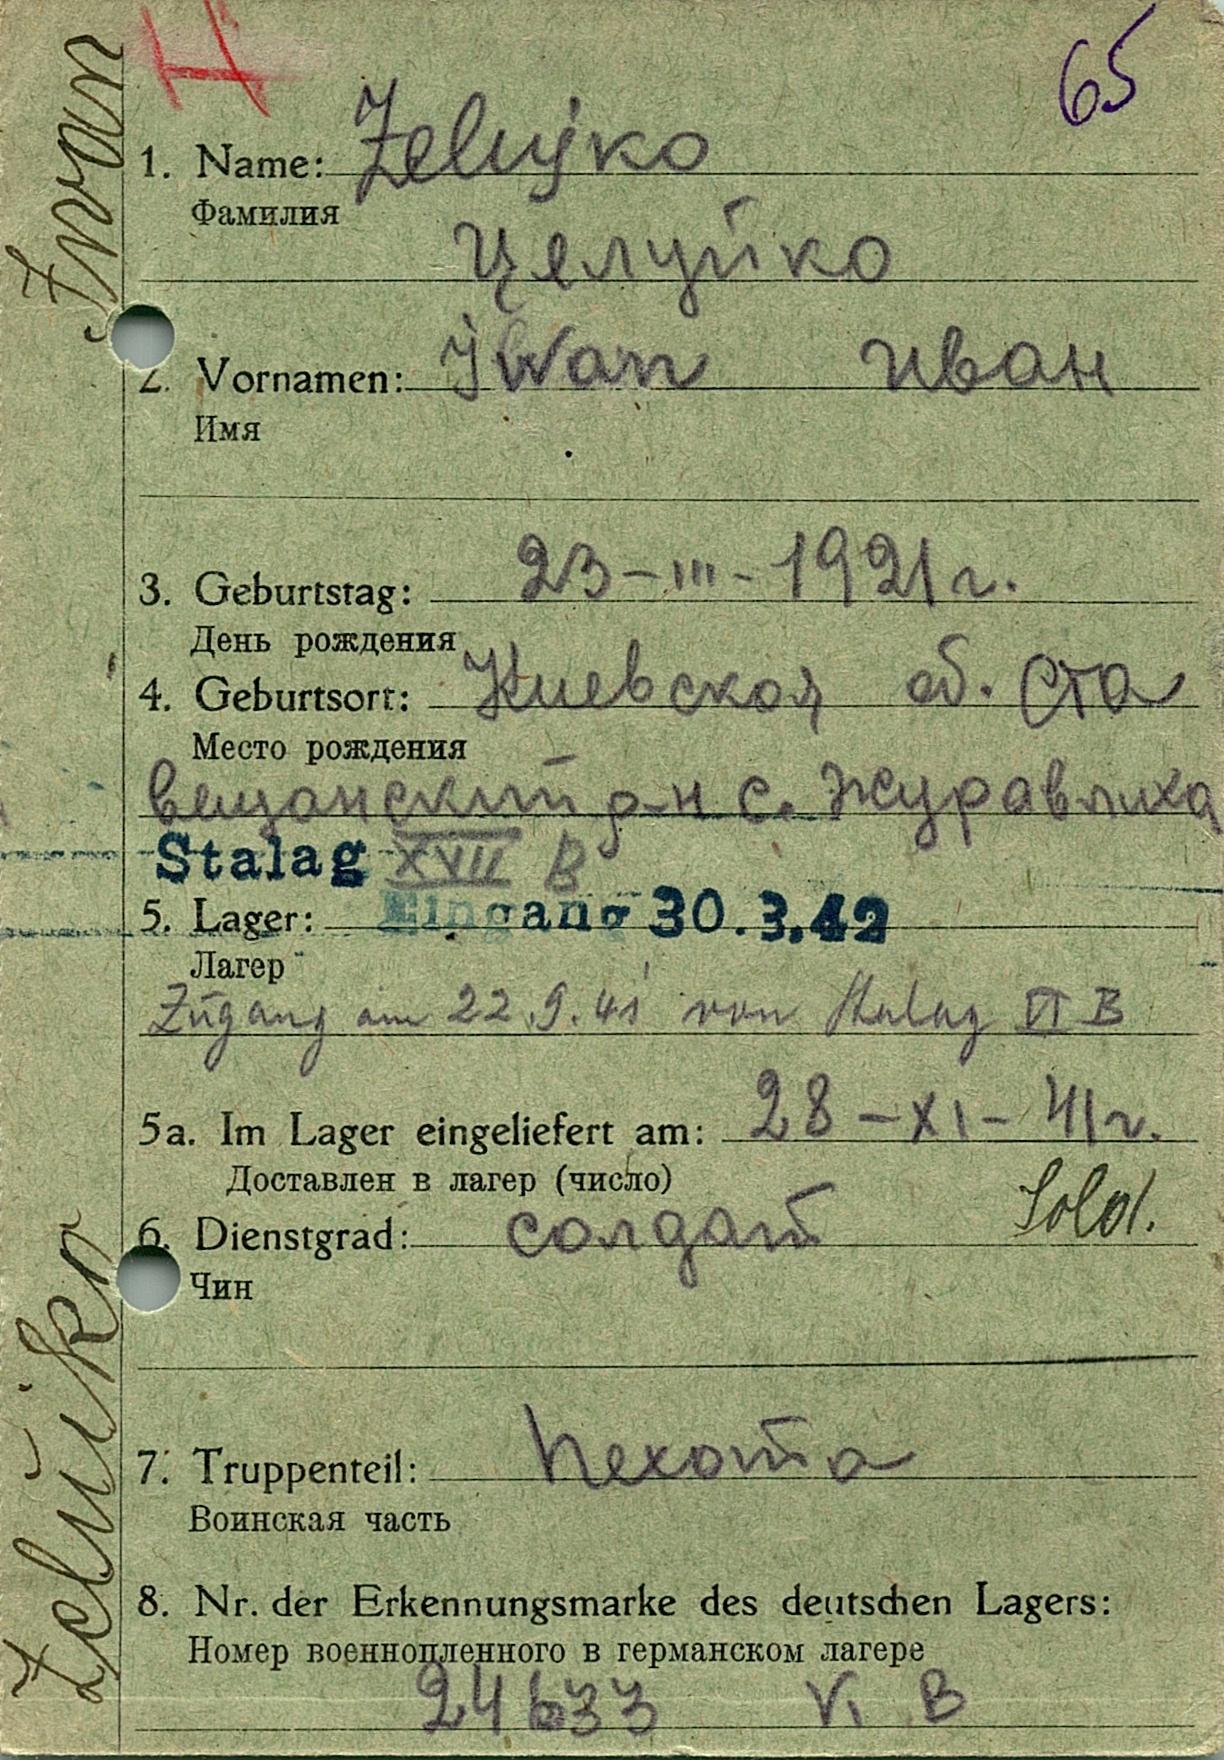 65
1. Name: Zelujko
Фамилия
Целуйко
2. Vornamen: Iwan Иван
Имя
3. Geburtstag: 23-III-1921 г.
День рождения
4. Geburtsort: Киевская об. Ста
Место рождения
вещанский р-н с. Журавлиха
Stalag XVII B
5. Lager: Eingang 30.3.42
Лагер
Zugang am 22.9.41 von Stalag VI B
5a. Im Lager eingeliefert am: 28-XI-41 г.
Доставлен в лагер (число)
6. Dienstgrad: солдат Sold.
Чин
7. Truppenteil: пехота
Воинская часть
8. Nr. der Erkennungsmarke des deutschen Lagers:
Номер военнопленного в германском лагере
24633 VI B
Zeluiko Iwan